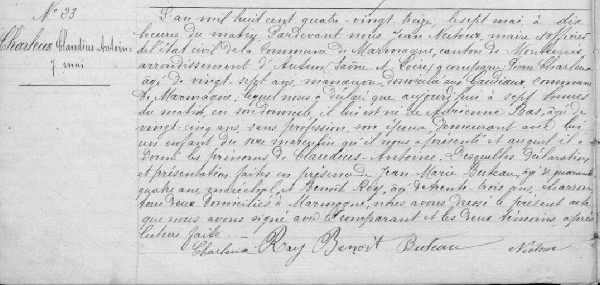 N° 23
Charleux Claudius Antoine
7 mai
L'an mil huit cent quatre-vingt treize, le sept mai à dix
heures du matin. Pardevant nous Jean Nectoux, maire et officier
de l'état civil de la Commune de Marmagne, canton de Montcenis,
arrondissement d'Autun, Saône et Loire, a comparu Pierre Charleux
âgé de vingt sept ans, manœuvre, domicilié aux Gaudiaux, commune
de Marmagne, lequel nous a déclaré que aujourd'hui à sept heures
du matin, en son domicile, il lui est né de Adrienne Bas, âgée de
vingt cinq ans, sans profession, son épouse, demeurant avec lui
un enfant du sexe masculin qu'il nous a présenté et auquel il a
donné les prénoms de Claudius-Antoine. Desquelles déclaration
et présentation faites en présence de Jean Marie Buteau, âgé de quarante
quatre ans, et Benoit Rey, âgé de trente-trois ans, charron,
tous deux domiciliés à Marmagne, nous avons dressé le présent acte
que nous avons signé avec le comparant et les deux témoins après
lecture faite.
Charleux Rey Benoit Buteau Nectoux